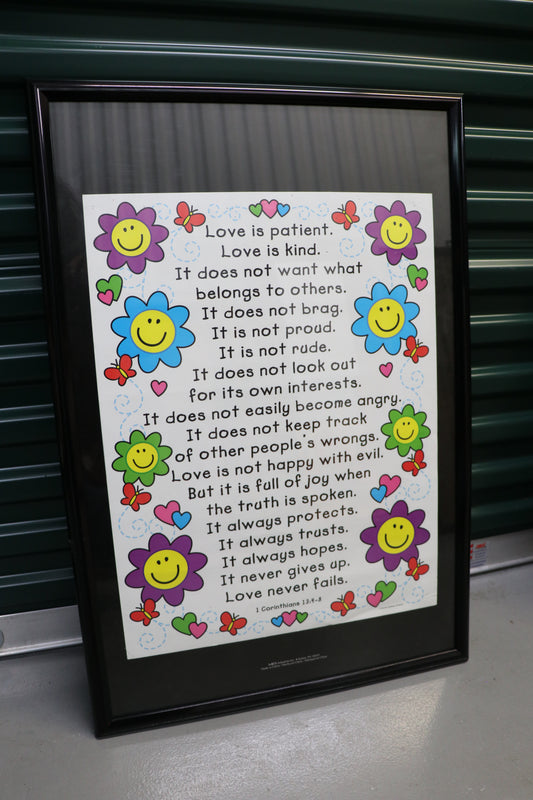 Love is patient.
Love is kind.
It does not want what
belongs to others.
It does not brag.
It is not proud.
It is not rude.
It does not look out
for its own interests.
It does not easily become angry.
It does not keep track
of other people's wrongs.
Love is not happy with evil.
But it is full of joy when
the truth is spoken.
It always protects.
It always trusts.
It always hopes.
It never gives up.
Love never fails.
1 Corinthians 13:4-8